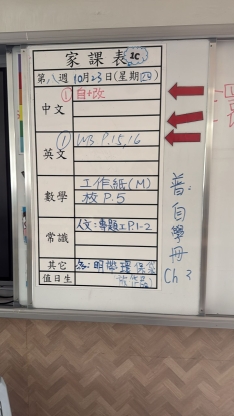 家課表 1C
第八週 10月23日(星期四)
中文 ① 自+改
英文 ① WB P.15,16
數學 工作紙(M)
校 P.5
常識 人文:專題工P.1-2
其它 為:明帶環保袋
(放作品)
值日生
普:自學冊
Ch 2